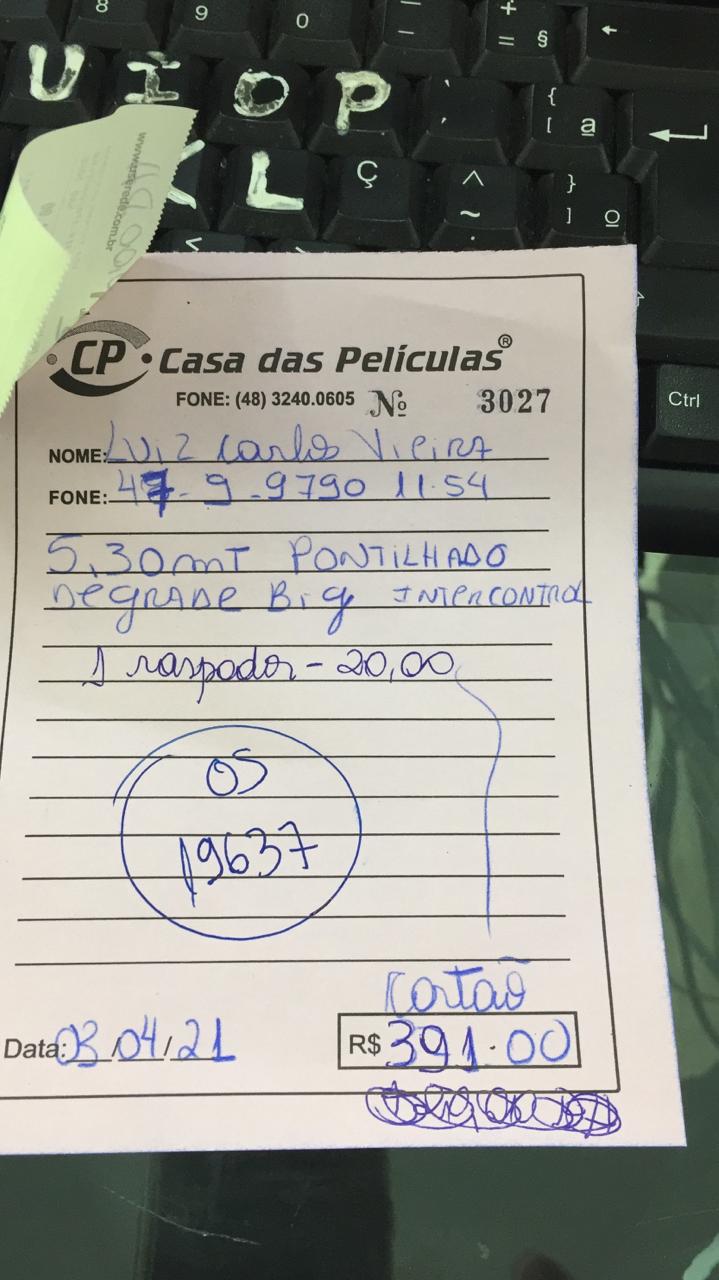 8 9 0 — _ + = §
U I O P ` ´ { [ ª
L Ç ^ ~ } ] º
<
Ctrl
www.userede.com.br
CP Casa das Películas®
FONE: (48) 3240.0605 Nº 3027
NOME: Luiz Carlos Vieira
FONE: 47-9-9790 11.54
5,30mT PONTILHADO
DEGRADE Big INTERCONTROL
1 raspador - 20,00
OS
19637
Cartão
Data: 03/04/21 R$ 391.00